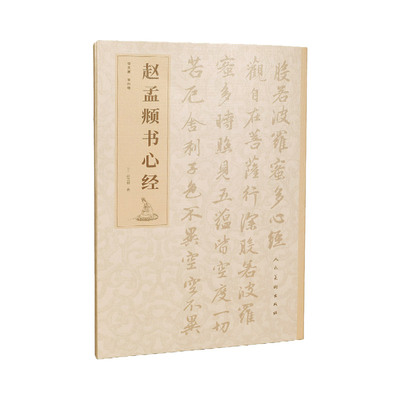 般若波羅蜜多心經
觀自在菩薩行深般若波羅
蜜多時照見五蘊皆空度一切
苦厄舍利子色不異空空不異
赵孟𫖯书心经
人民美术出版社